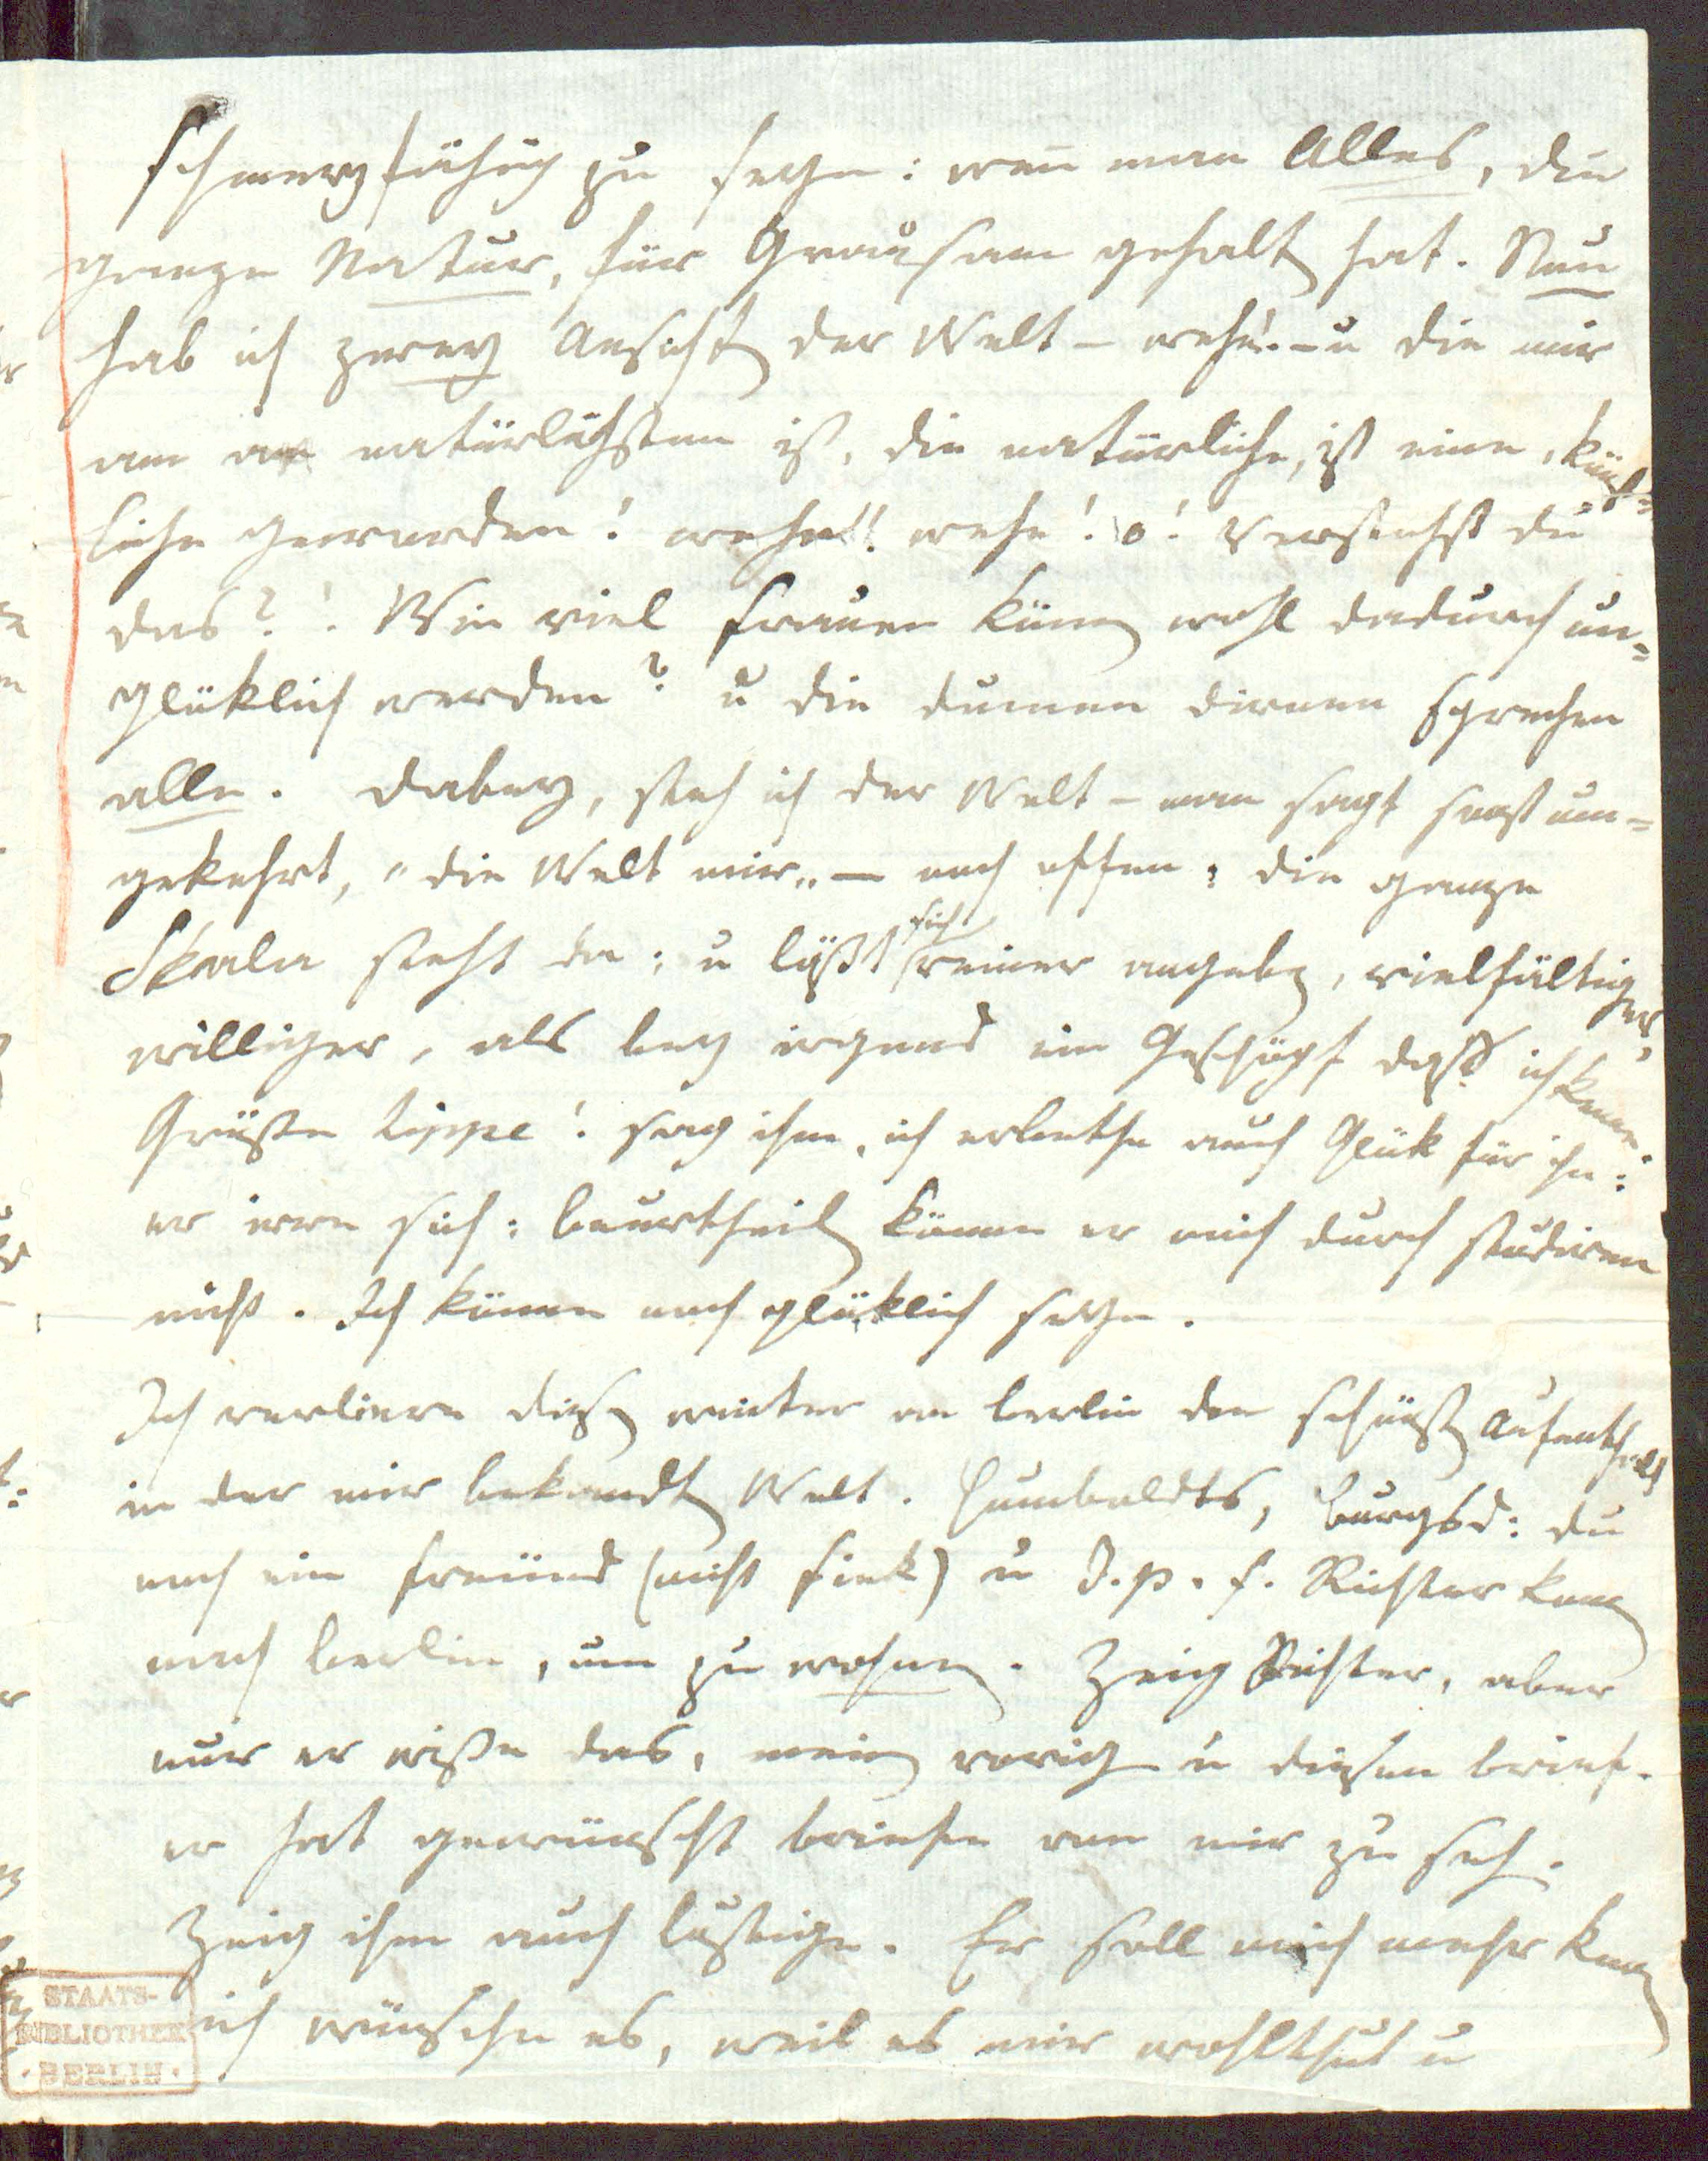 schmerzfähig zu seyn: wen̄ man Alles, die
ganze Natur, für Grausam gehalt hat. Nun
hab ich zwey Ansicht der Welt – wehe! – u die mir
am natürlichsten ist, die natürliche, ist eine, künst=
liche geworden! wehe!! wehe! o! Verstehst du
das?! Wie viel frauen könen wohl dadurch un=
glüklich werden? u die dummen dienen sprechen
alle. Dabey, steh ich der Welt – man sagt sonst um=
gekehrt, „die Welt mir„ – noch offen; die ganze
Skala steht da; u läßt sich reiner angeben, vielfältiger,
williger, als bey irgend ein Geschöpf daß ich kenne.
Grüße Lippe! sag ihm, ich erbethe auch Glük für ihn:
er irre sich: beurtheilen könne er mich durch studiren
nicht. Ich könne noch glüklich seyn.
Ich verliere diesen winter an berlin den schönsten Aufenthalt
in der mir bekandten Welt. Humboldts, burgsd: du
noch ein freund (nicht fink) u J. p. f. Richter komen
nach berlin, um zu wohnen. Zeig Richter, aber
nur er wiße das, meinen vorigen u diesen brief.
er hat gewünscht briefe von mir zu sehen.
Zeig ihm auch lustige. Er soll mich mehr kennen
ich wünsche es, weil es mir wohlthut u
STAATS-
BIBLIOTHEK
· BERLIN ·